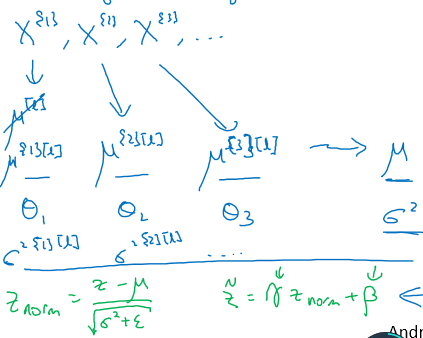 X^{1}, X^{2}, X^{3}, ...
μ^[l]
μ^{1}[l] μ^{2}[l] μ^{3}[l] → μ
θ₁ θ₂ θ₃ σ²
σ²^{1}[l] σ²^{2}[l] ....
z_norm = (z - μ) / √(σ² + ε) z̃ = γ z_norm + β ←
Andr